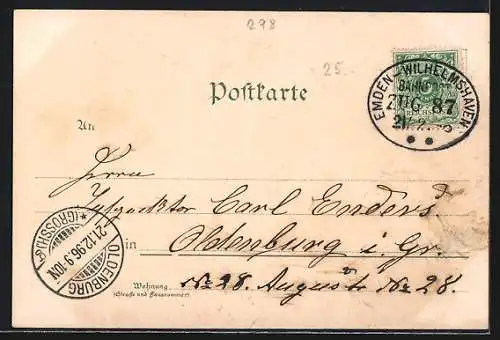 298
25..
Postkarte
EMDEN-WILHELMSHAVEN
BAHNPOST
ZUG 87
An
Herrn
Inspektor Carl Enders.
in Oldenburg i. Gr.
No 28. August No 28.
Wohnung
(Straße und Hausnummer)
OLDENBURG
-21.12.96.9-10N.
*(GROSSH.)*